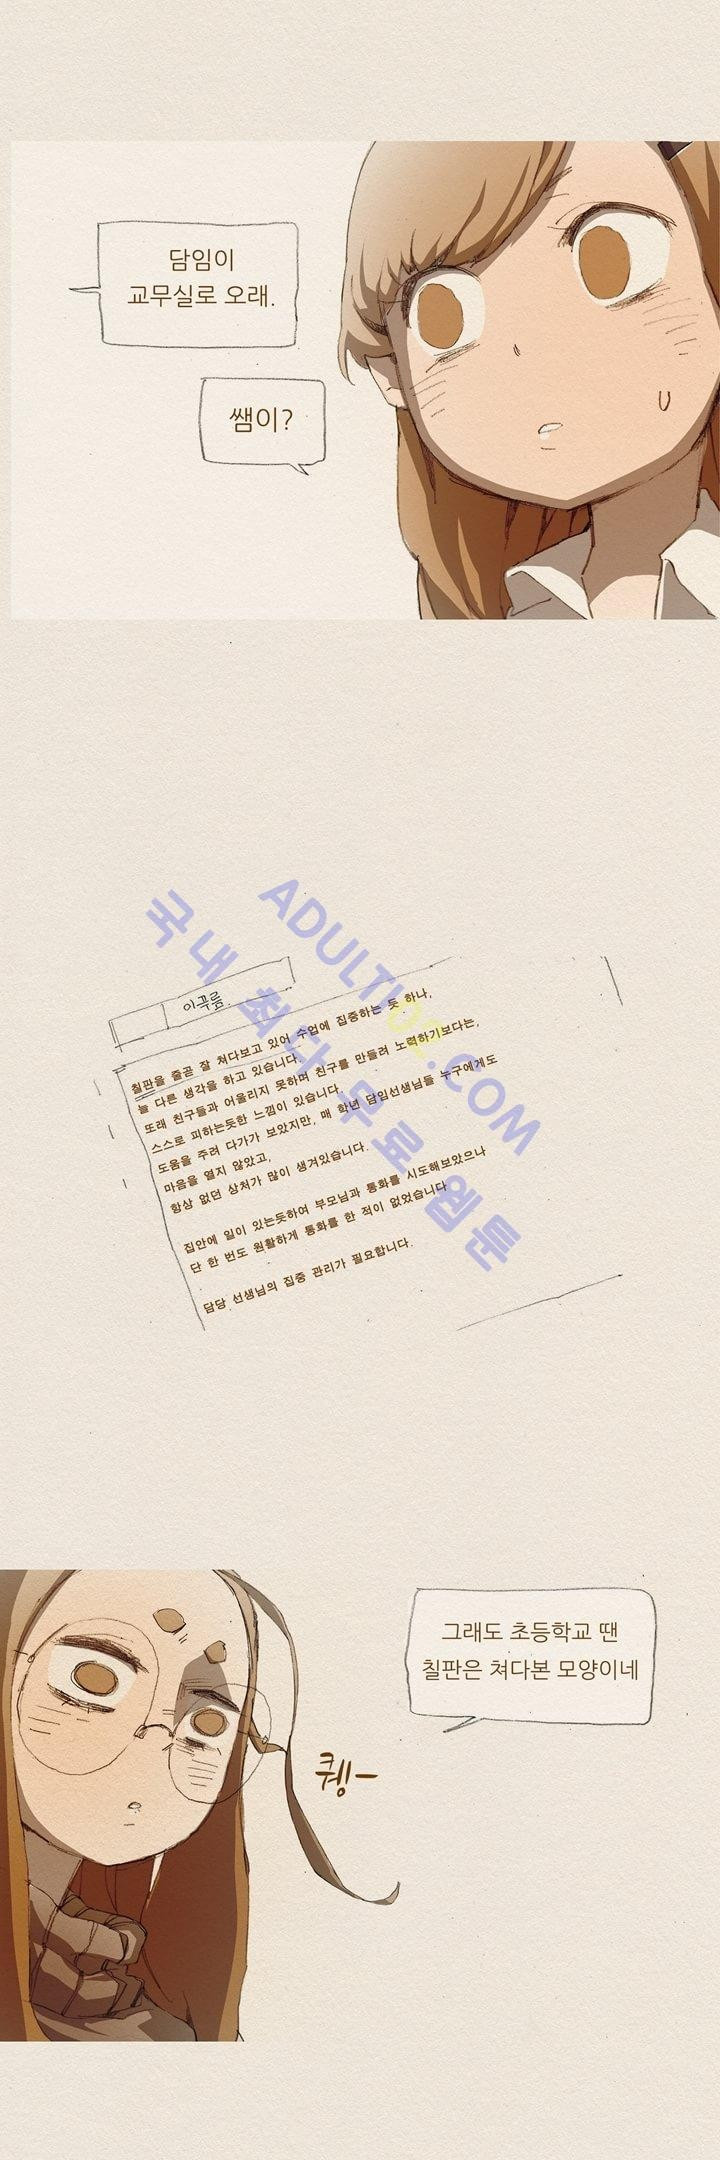 담임이
교무실로 오래.
쌤이?
국내 최다 무료 웹툰
ADULTI02.COM
이푸름.
칠판을 줄곧 잘 쳐다보고 있어 수업에 집중하는 듯 하나,
늘 다른 생각을 하고 있습니다.
또래 친구들과 어울리지 못하며 친구를 만들려 노력하기보다는,
스스로 피하는듯한 느낌이 있습니다.
도움을 주려 다가가 보았지만, 매 학년 담임선생님들 누구에게도
마음을 열지 않았고,
항상 없던 상처가 많이 생겨있습니다.
집안에 일이 있는듯하여 부모님과 통화를 시도해보았으나
단 한 번도 원활하게 통화를 한 적이 없었습니다
담당 선생님의 집중 관리가 필요합니다.
그래도 초등학교 땐
칠판은 쳐다본 모양이네
퀭-